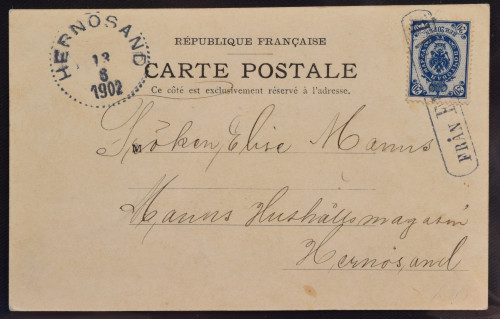 HERNÖSAND
13
6
1902
RÉPUBLIQUE FRANÇAISE
CARTE POSTALE
Ce côté est exclusivement réservé à l'adresse.
FRÅN F
M
Fröken Elise Manns
Manns Hushållsmagasin
Hernösand